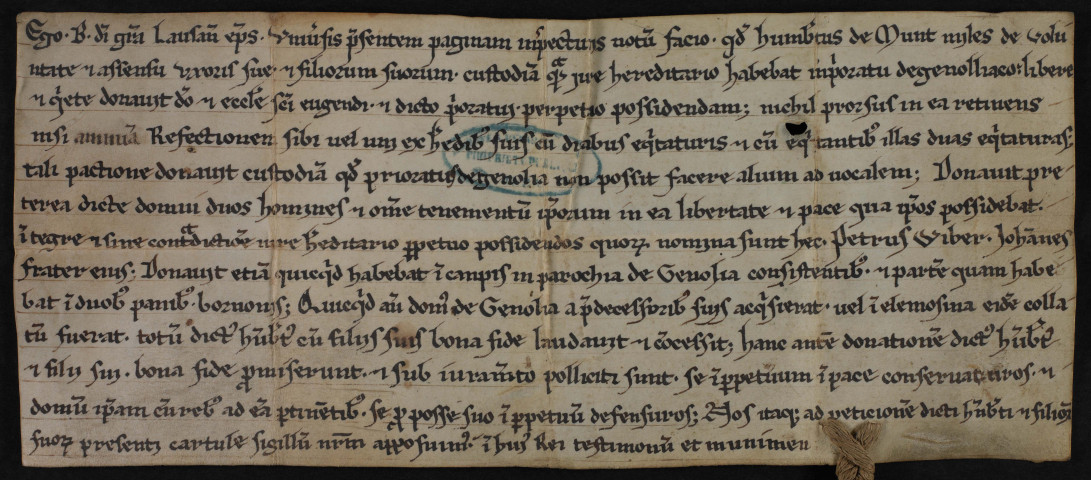 Ego · B · di gra Lausan eps · vniusis psentem paginam inspecturis notu facio · qd humbtus de Munt myles de volu
ntate ⁊ assensu vxoris sue · ⁊ filiorum suorum · custodia qa iure hereditario habebat in prioratu de genolliaco · libere
⁊ qete donauit do ⁊ eccle sci eugendi · ⁊ dicto prioratui perpetuo possidendam ; nichil prorsus in ea retinens
nisi annua Refectionem sibi uel uni ex hedib suis cu duabus eqtaturis ⁊ cu eqtantib illas duas eqtaturas ;
tali pactione donauit custodia qd prioratus de genolia non possit facere alium ad uocatem ; Donauit pre
terea dicte domui duos homines ⁊ ome tenementu iporum in ea libertate ⁊ pace qua ipos possidebat ·
itegre ⁊ sine contadictioe iure heditario ppetuo possidendos quoꝝ nomina sunt hec · Petrus Wiber · Johanes
frater eius ; Donauit etia quicqd habebat i campis in parochia de Genolia consistentib · ⁊ parte quam habe
bat i duob panib · bornonis ; Quicqd au dom de Genolia a pdecessorib suis acqsierat · uel i elemosina eide colla
tu fuerat · totu dict hubt cu filiis suis bona fide laudauit ⁊ cocessit ; hanc aute donatione dict hubt
⁊ filii sui · bona fide promiserunt · ⁊ sub iuramto polliciti sunt · se i ppetuum i pace conseruaturos · ⁊
domu ipam cu reb ad ea ptinetib · se pro posse suo i ppetuu defensuros ; Nos itaq ad peticione dicti hubti ⁊ filioꝝ
suoꝝ presenti cartule sigillu nrm apposuim · i hui Rei testimoniu et munimen